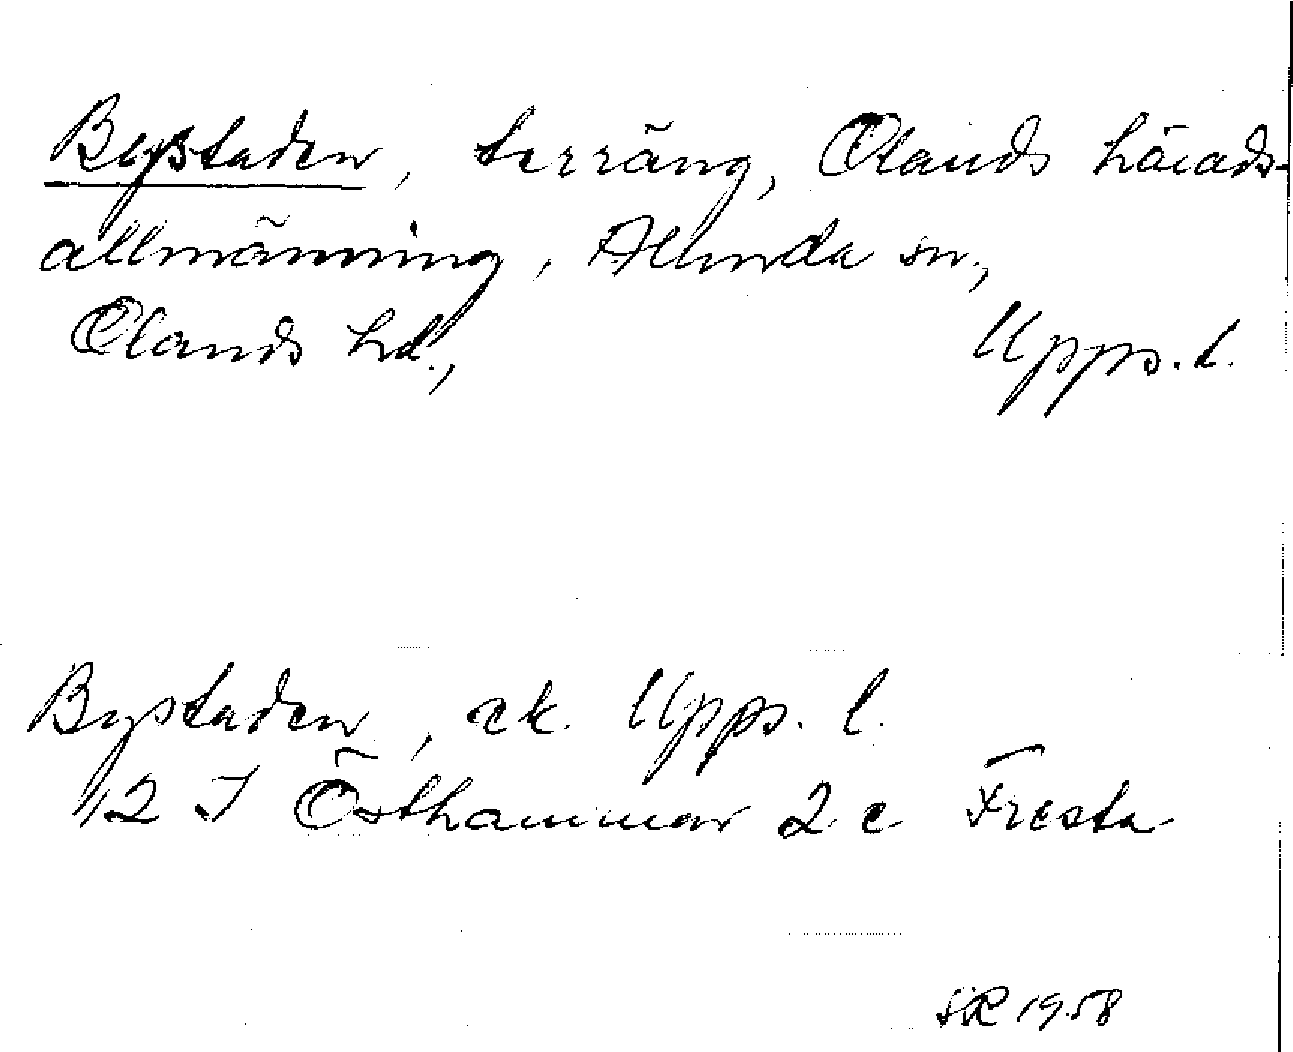 Bystaden, terräng, Olands härads-
allmänning, Alunda sn,
Olands hd.,
Upps. l.
Bystaden, ek. Upps. l.
12 I Östhammar 2 c Fresta
SR 1958